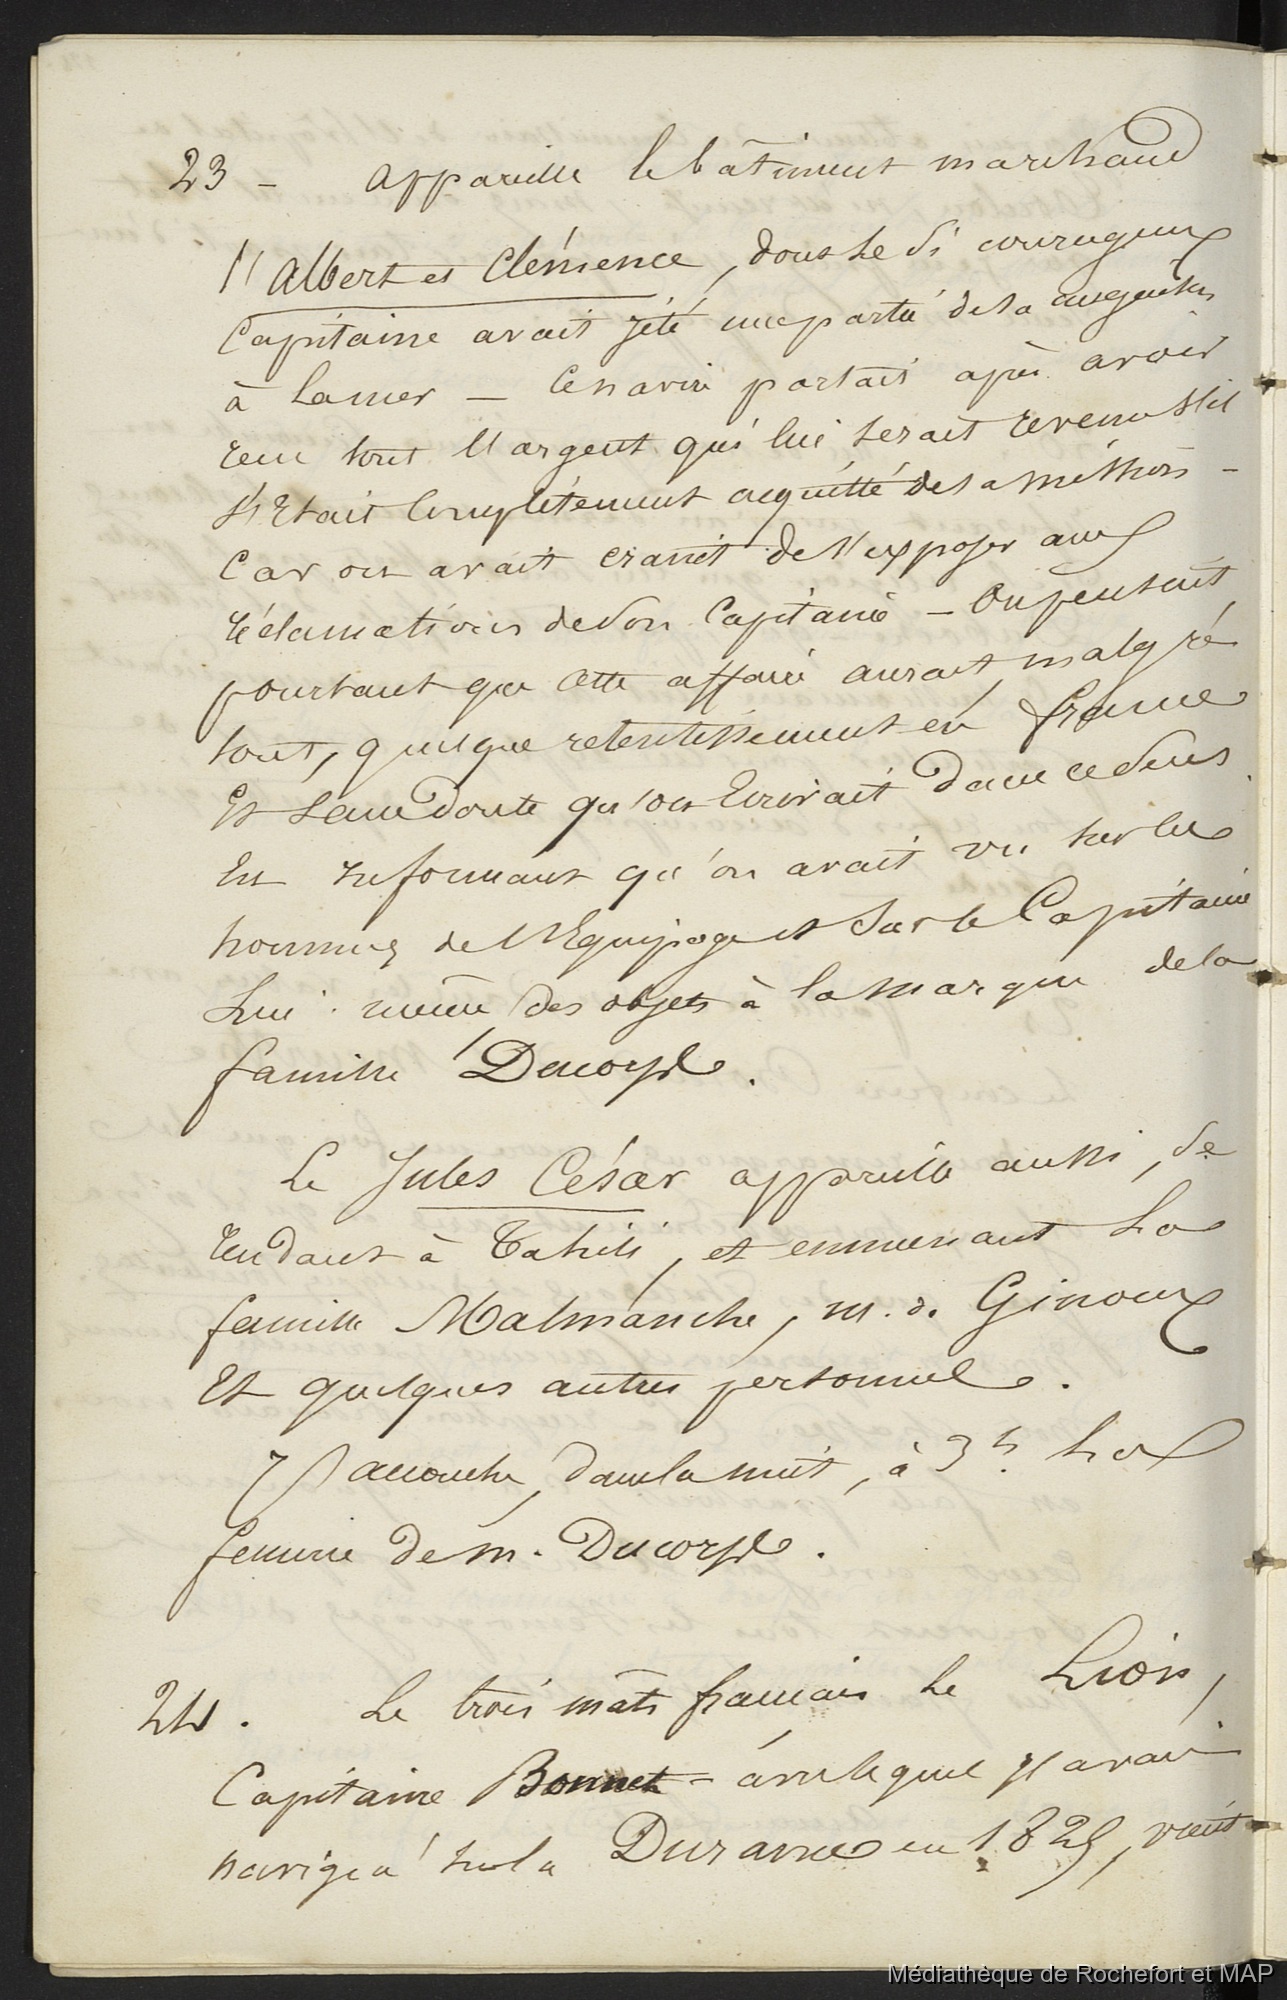 23 - appareille le bâtiment marchand
l'Albert et Clémence, dont le si courageux
Capitaine avait jeté une partie de sa cargaison
à la mer - Ce navire partait après avoir
reçu tout l'argent qui lui serait revenu s'il
s'était complètement acquitté de sa mission -
Car on avait craint de s'exposer aux
réclamations de son Capitaine - On pensait
pourtant que cette affaire aurait, malgré
tout, quelque retentissement en france
Et sans doute qu'on Ecrirait dans ce sens
En informant qu'on avait vu sur les
hommes de l'Equipage et sur le Capitaine
lui-même, des objets à la marque de la
famille Ducorps.
Le Jules César appareille aussi, se
rendant à Tahiti, et emmenant la
famille Malmanche, M. de Ginoux
Et quelques autres personnes.
accouche, dans la nuit, à 3h. la
femme de M. Ducorps.
24. Le trois mâts français le Lion,
Capitaine Bonnet - avec lequel j'avais
navigué sur la Durance en 1825, vient
Médiathèque de Rochefort et MAP